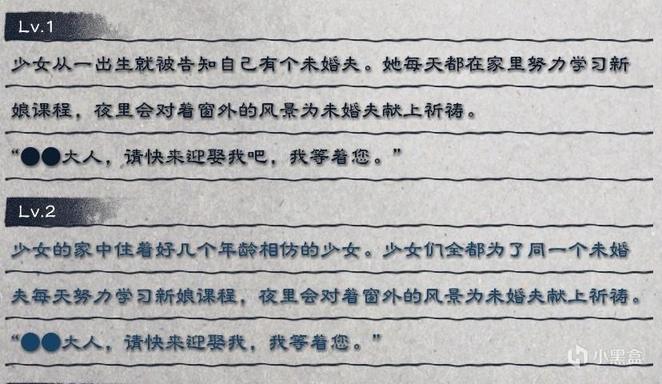 Lv.1
少女从一出生就被告知自己有个未婚夫。她每天都在家里努力学习新
娘课程，夜里会对着窗外的风景为未婚夫献上祈祷。
“●●大人，请快来迎娶我吧，我等着您。”
Lv.2
少女的家中住着好几个年龄相仿的少女。少女们全都为了同一个未婚
夫每天努力学习新娘课程，夜里会对着窗外的风景为未婚夫献上祈祷。
“●●大人，请快来迎娶我，我等着您。”
小黑盒